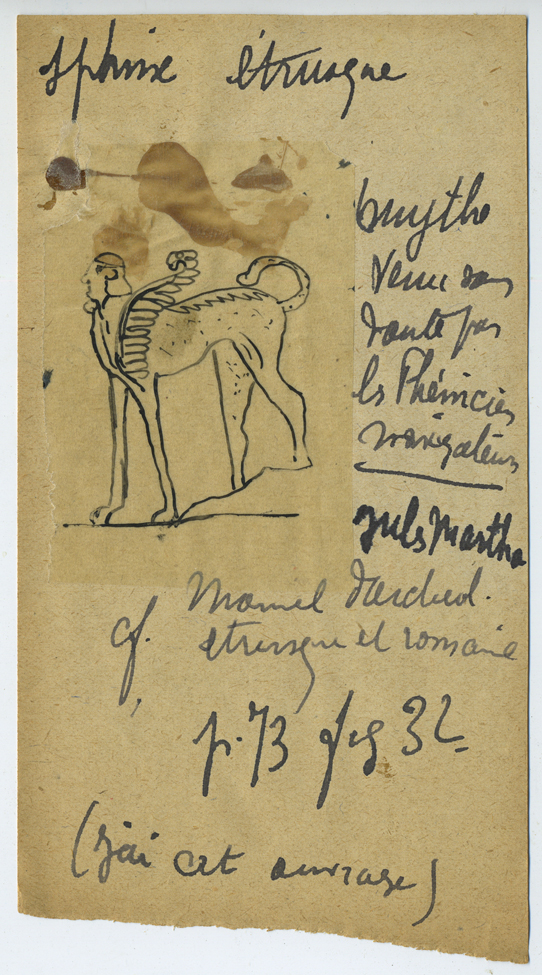 sphinx étrusque
mythe
venu sans
doute par
les Phéniciens
navigateurs
Jules Martha
Manuel d'archéol.
cf. étrusque et romaine
p. 73 fig 32
(j'ai cet ouvrage)